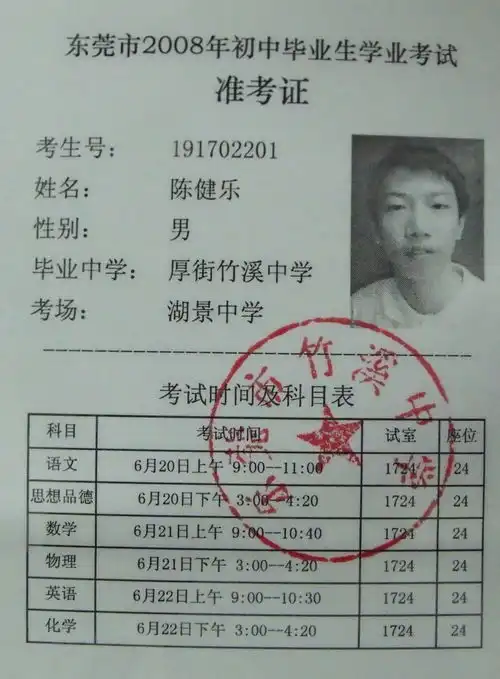 东莞市2008年初中毕业生学业考试
准考证
考生号: 191702201
姓名: 陈健乐
性别: 男
毕业中学: 厚街竹溪中学
考场: 湖景中学
考试时间及科目表
科目 考试时间 试室 座位
语文 6月20日上午 9:00--11:00 1724 24
思想品德 6月20日下午 3:00--4:20 1724 24
数学 6月21日上午 9:00--10:40 1724 24
物理 6月21日下午 3:00--4:20 1724 24
英语 6月22日上午 9:00--10:30 1724 24
化学 6月22日下午 3:00--4:20 1724 24
竹溪中学